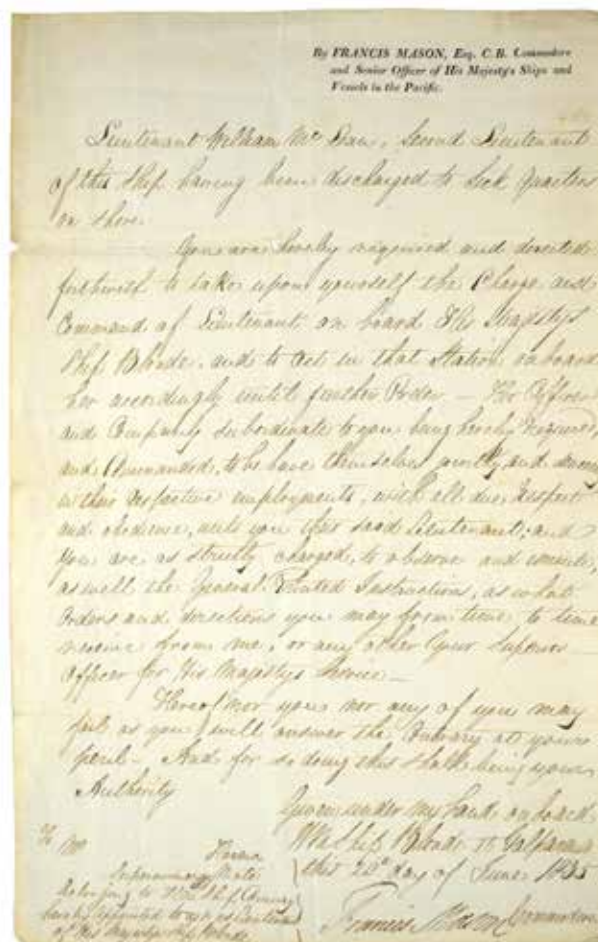 By FRANCIS MASON, Esq. C.B. Commodore
and Senior Officer of His Majesty's Ships and
Vessels in the Pacific.
Lieutenant William Mc , Second Lieutenant
of this Ship having been discharged to Sick Quarters
on shore.
You are hereby required and directed
forthwith to take upon yourself the Charge and
Command of Lieutenant on board His Majesty's
Ship Blonde, and to act in that Station on board
her accordingly until further Order — The Officers
and Company subordinate to you being hereby required,
and Commanded, to be have themselves jointly and
in their respective employments, with all due respect
and obedience, unto you their said Lieutenant; and
you are as strictly charged, to observe and execute,
as well the General Printed Instructions, as what
Orders and directions you may from time to time
receive from me, or any other your Superior
Officer for His Majesty's Service —
Hereof nor you nor any of you may
fail as you will answer the Contrary at your
peril — And for so doing this shall be your
Authority
Given under my hand on board
Ship Blonde at Valparaiso
this 20th day of June 1835
Francis Mason Commodore
To Mr
Supernumerary Mate
belonging to Ship
hereby appointed to act as Lieutenant
of His Majesty's Ship Blonde